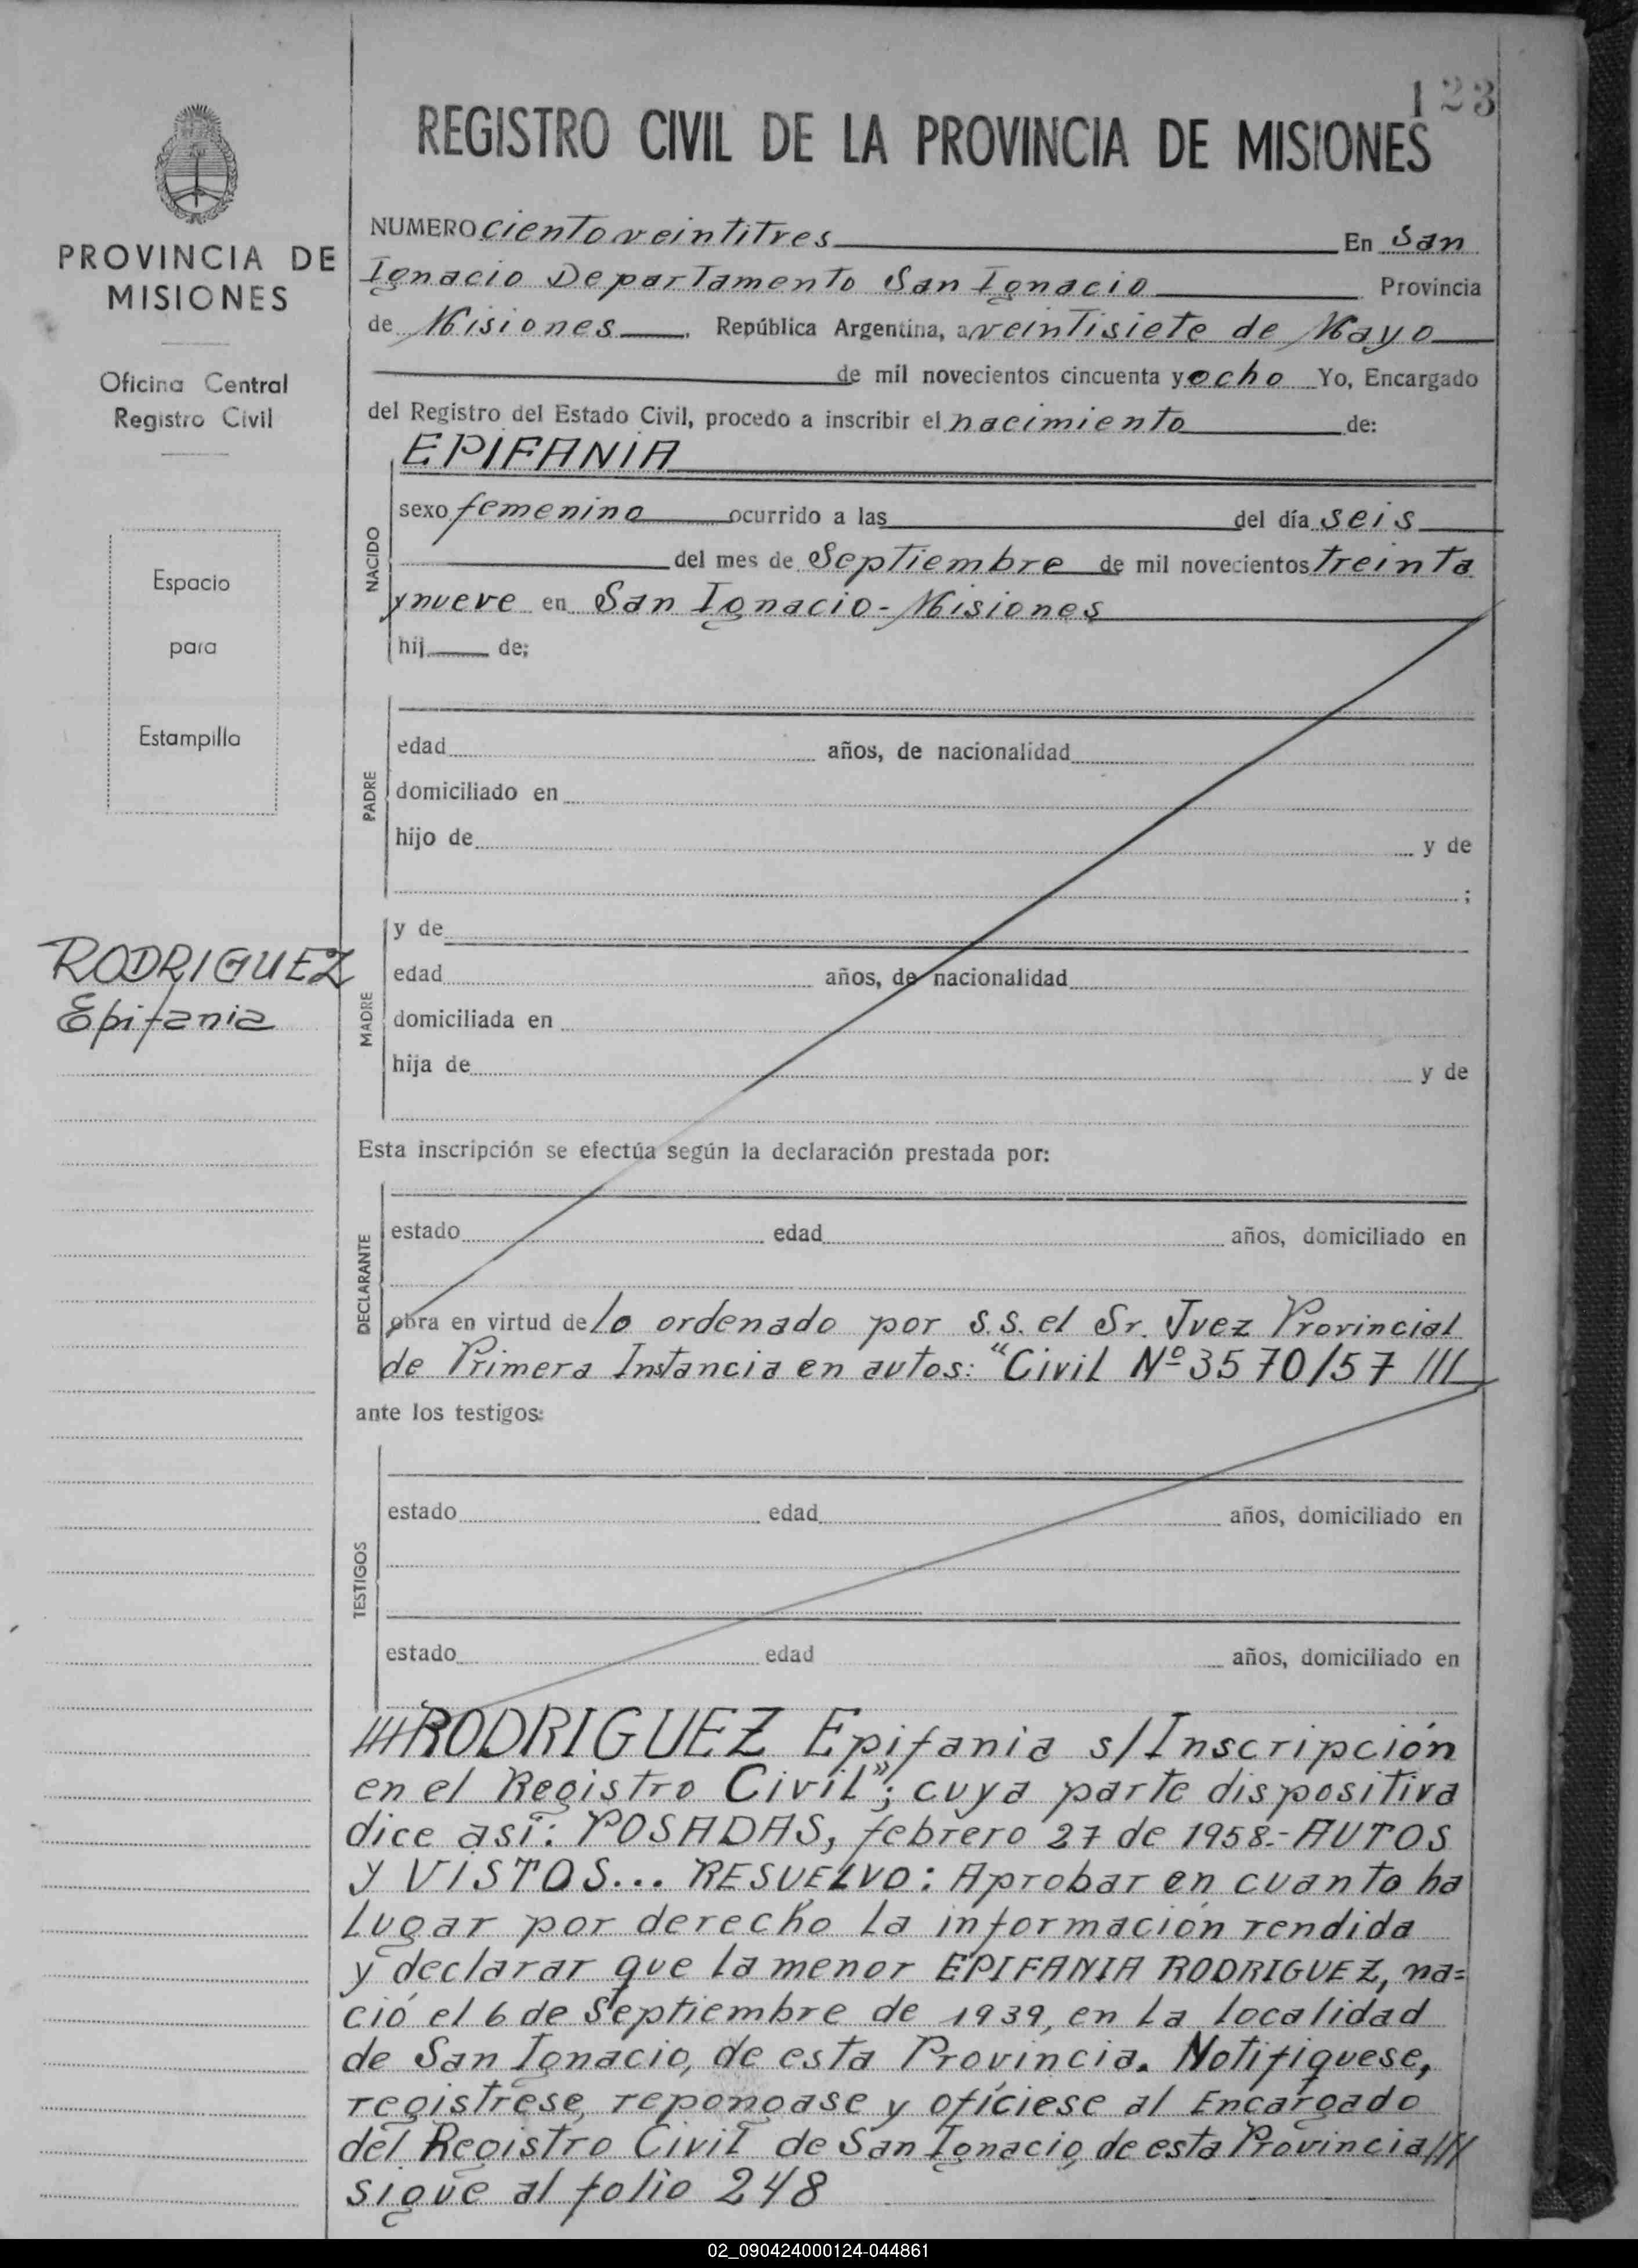 123
REGISTRO CIVIL DE LA PROVINCIA DE MISIONES
PROVINCIA DE
MISIONES
Oficina Central
Registro Civil
Espacio
para
Estampilla
RODRIGUEZ
Epifania
NUMERO ciento veintitres En San
Ignacio Departamento San Ignacio Provincia
de Misiones, República Argentina, a veintisiete de Mayo
de mil novecientos cincuenta y ocho Yo, Encargado
del Registro del Estado Civil, procedo a inscribir el nacimiento de:
NACIDO
EPIFANIA
sexo femenino ocurrido a las del día seis
del mes de Septiembre de mil novecientos treinta
y nueve en San Ignacio - Misiones
hij de;
PADRE
edad años, de nacionalidad
domiciliado en
hijo de y de
;
MADRE
y de
edad años, de nacionalidad
domiciliada en
hija de y de
Esta inscripción se efectúa según la declaración prestada por:
DECLARANTE
estado edad años, domiciliado en
obra en virtud de lo ordenado por S.S. el Sr. Juez Provincial
de Primera Instancia en autos: "Civil Nº 3570/57 ///
ante los testigos:
TESTIGOS
estado edad años, domiciliado en
estado edad años, domiciliado en
///RODRIGUEZ Epifania s/Inscripción
en el Registro Civil"; cuya parte dispositiva
dice así: POSADAS, febrero 27 de 1958.- AUTOS
y VISTOS... RESUELVO: Aprobar en cuanto ha
lugar por derecho la información rendida
y declarar que la menor EPIFANIA RODRIGUEZ, na=
ció el 6 de Septiembre de 1939, en la localidad
de San Ignacio, de esta Provincia. Notifíquese,
regístrese, repongase y ofíciese al Encargado
del Registro Civil de San Ignacio, de esta Provincia///
sigue al folio 248
02_090424000124-044861